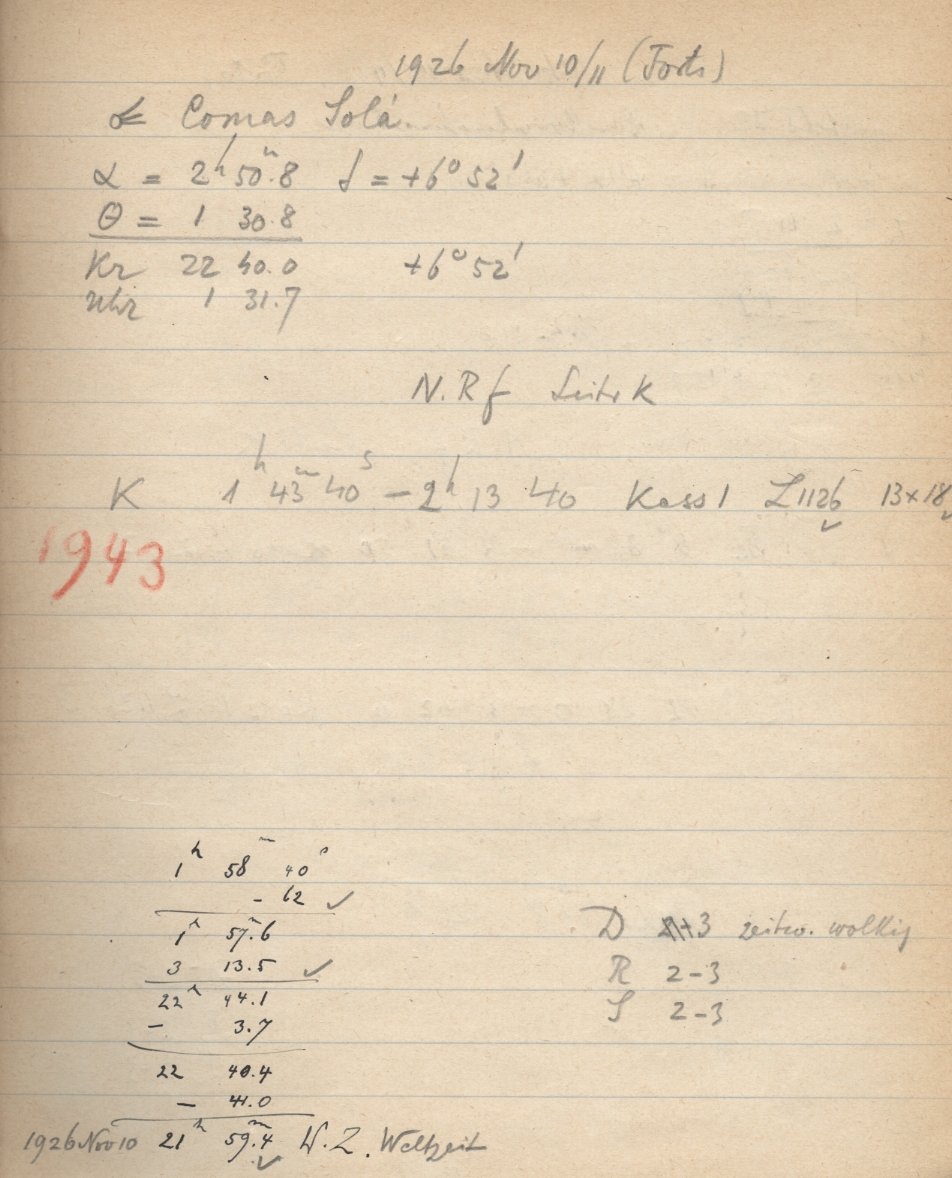 1926 Nov 10/11 (Forts)
Comas Solá
α = 2ʰ 50ᵐ.8 δ = +6° 52'
θ = 1 30.8
Kr 22 40.0 +6° 52'
Uhr 1 31.7
N.Rf Leitr K
K 1ʰ 43ᵐ 40ˢ – 2ʰ 13 40 Kass 1 L 1126 13×18
1943
1ʰ 58ᵐ 40ˢ
- 62 ✓
1ʰ 57ᵐ.6
3 13.5 ✓
22ʰ 44.1
– 3.7
22 40.4
– 41.0
1926 Nov 10 21ʰ 59ᵐ.4 W.Z. Weltzeit
D 3 zeitw. wolkig
R 2-3
S 2-3